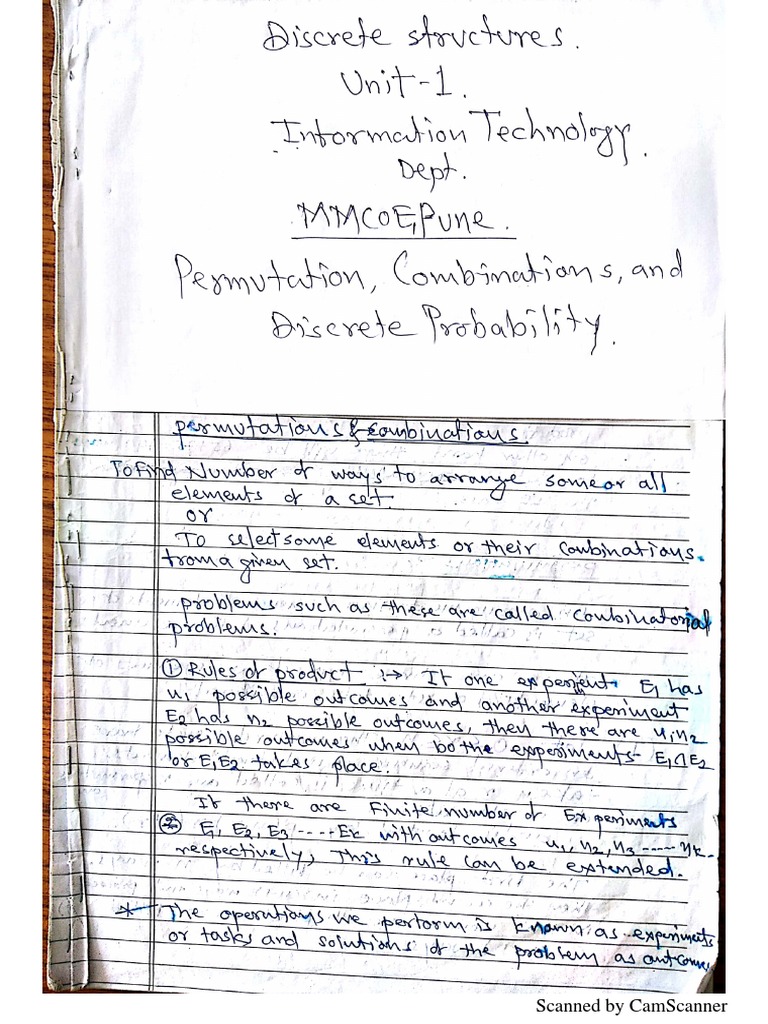 Discrete structures.
Unit-1.
Information Technology.
Dept.
MMCOE, Pune.
Permutation, Combinations, and
Discrete Probability.
permutations & combinations.
To find Number of ways to arrange some or all
elements of a set.
or
To select some elements or their combinations.
from a given set.
problems such as these are called combinatorial
problems.
① Rules of product :→ If one experient E1 has
n1 possible outcomes and another experiment
E2 has n2 possible outcomes, then there are n1n2
possible outcomes when bothe experiments E1 E2
or E1E2 takes place.
If there are Finite number of Experiments
② E1, E2, E3 ----- Ek with outcomes n1, n2, n3 ----- nk.
respectively, This rule can be extended.
* The operations we perform is known as experiments
or tasks and solutions of the problem as outcomes
Scanned by CamScanner